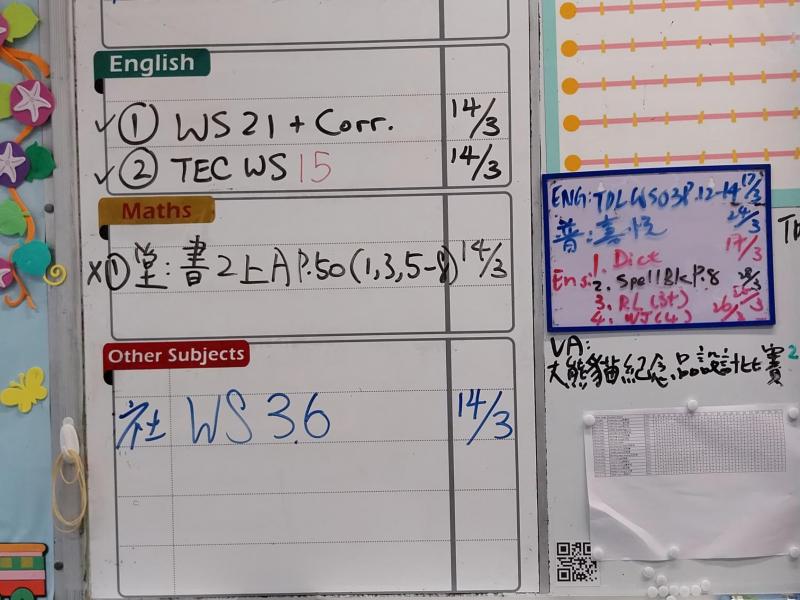 English
✓ ① WS 21 + Corr. 14/3
✓ ② TEC WS 15 14/3
Maths
X ① 堂: 書 2上A P.50 (1,3,5-8) 14/3
Other Subjects
社 WS 3.6 14/3
ENG: TDLWS03 P.12-14 17/3
普: 24/3
1. Dict 17/3
Eng: 2. Spell Bk P.8 28/3
3. RL (3+)
4. WJ (4) 26/3
VA:
大熊貓紀念品設計比賽 2